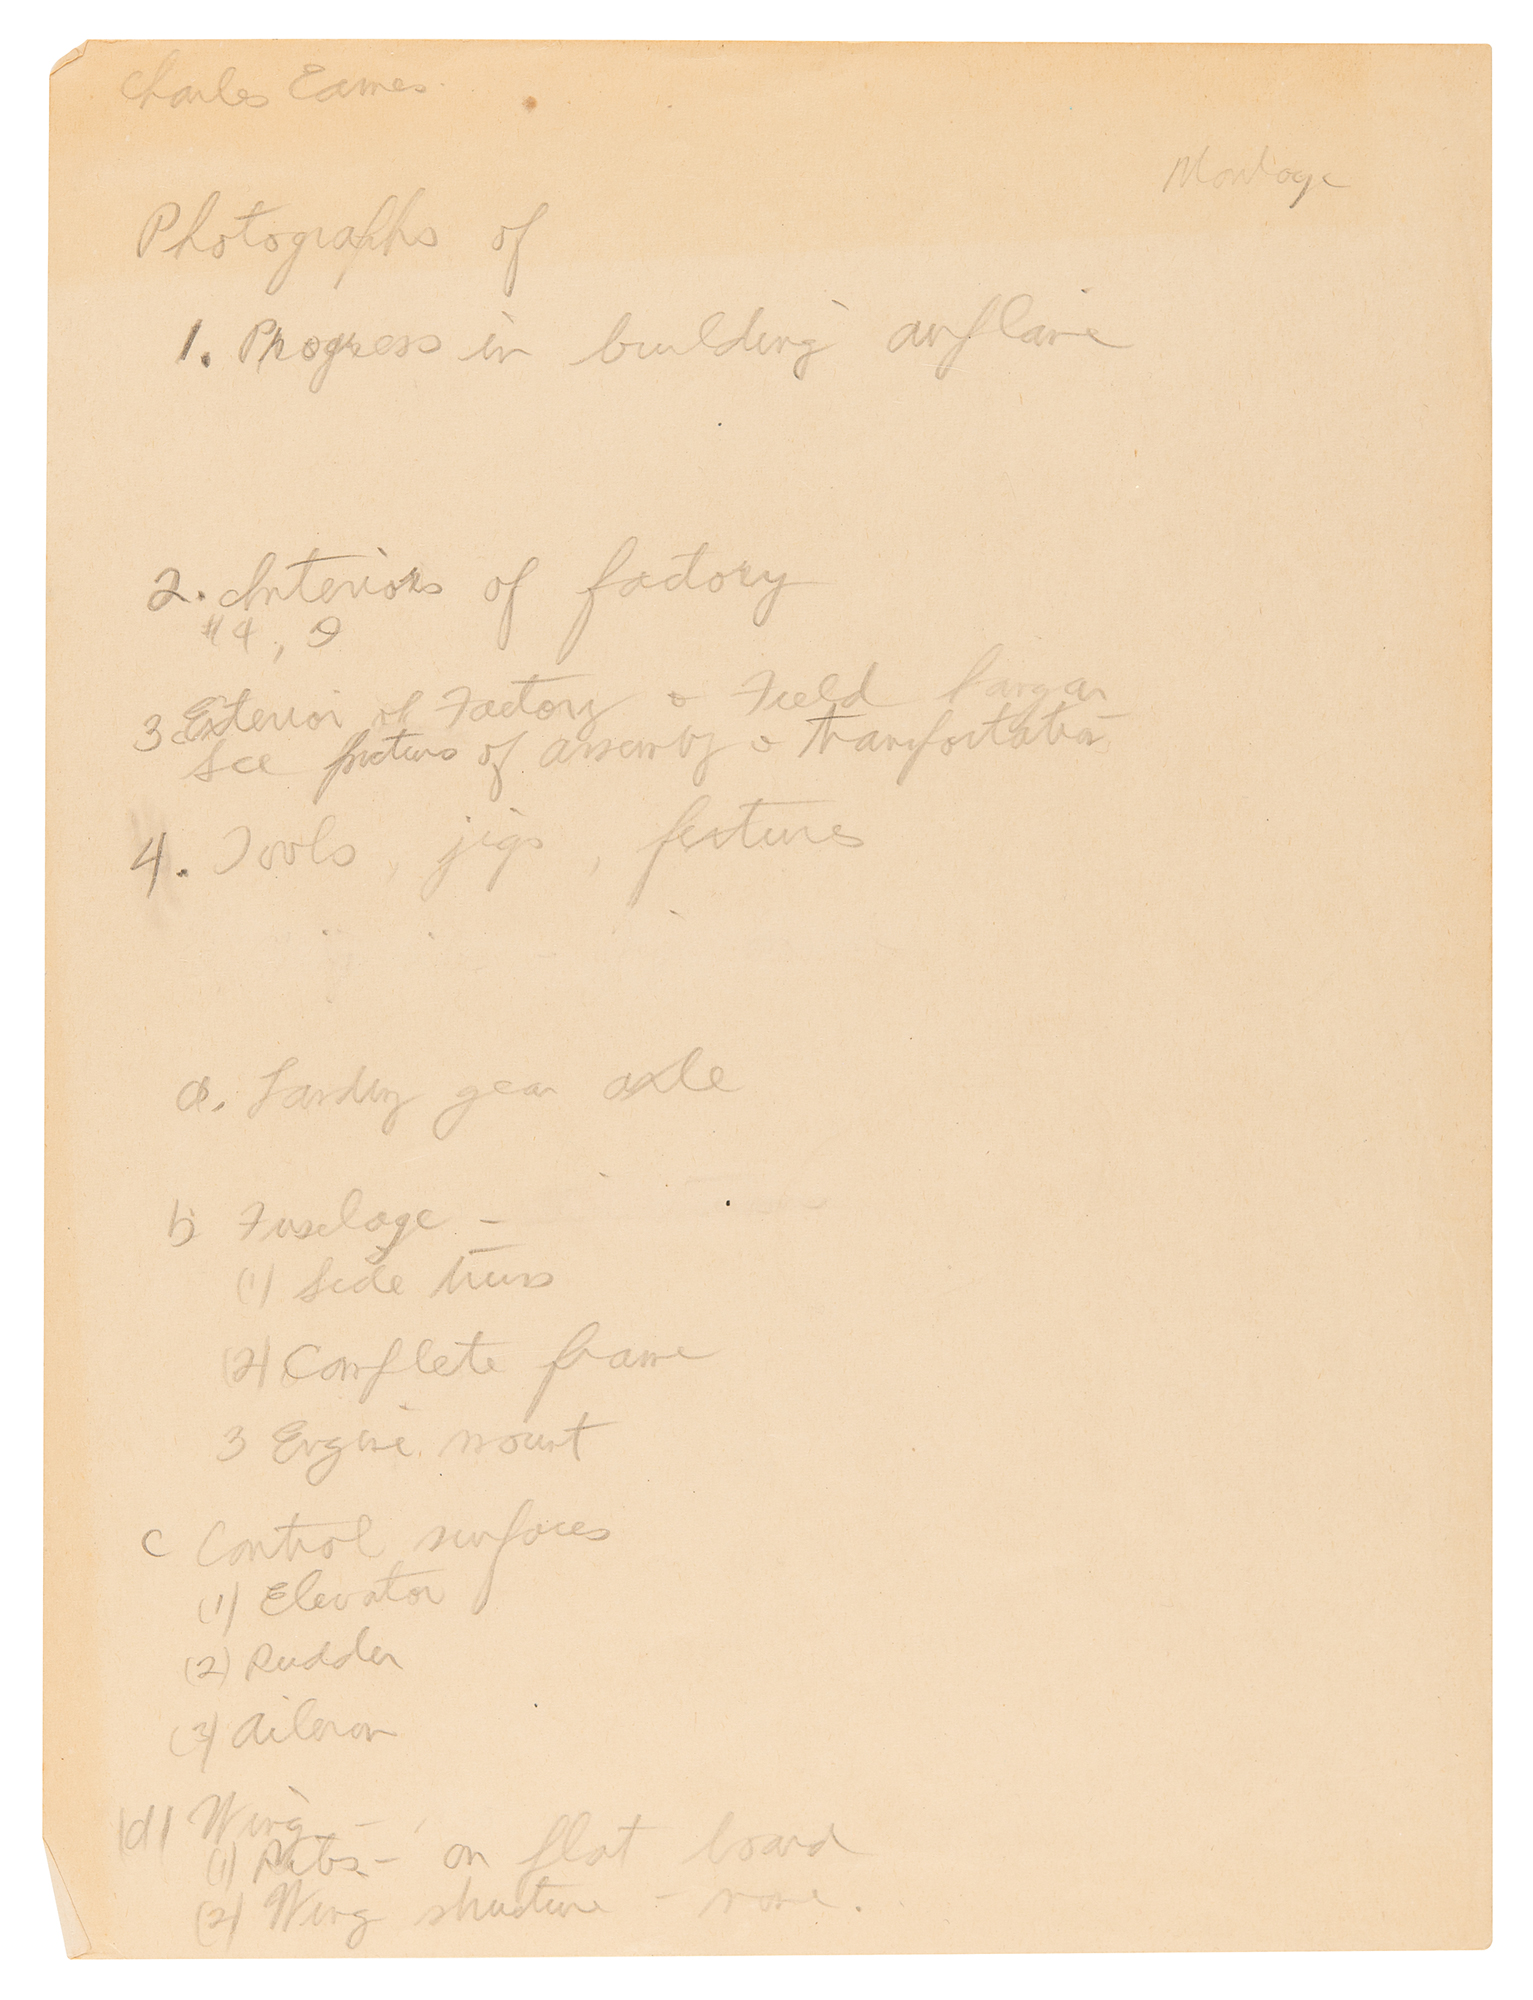 Charles Eames
Montage
Photographs of
1. Progress in building airplane
2. Interiors of factory
#4, 9
3 Exterior of Factory & Field hangar
See pictures of assembly & transportation
4. Tools, jigs, fixtures
a. Landing gear axle
b Fuselage -
(1) Side truss
(2) Complete frame
3 Engine mount
c Control surfaces
(1) Elevator
(2) Rudder
(3) Aileron
(d) Wing -
(1) Ribs - on flat board
(2) Wing structure - none.